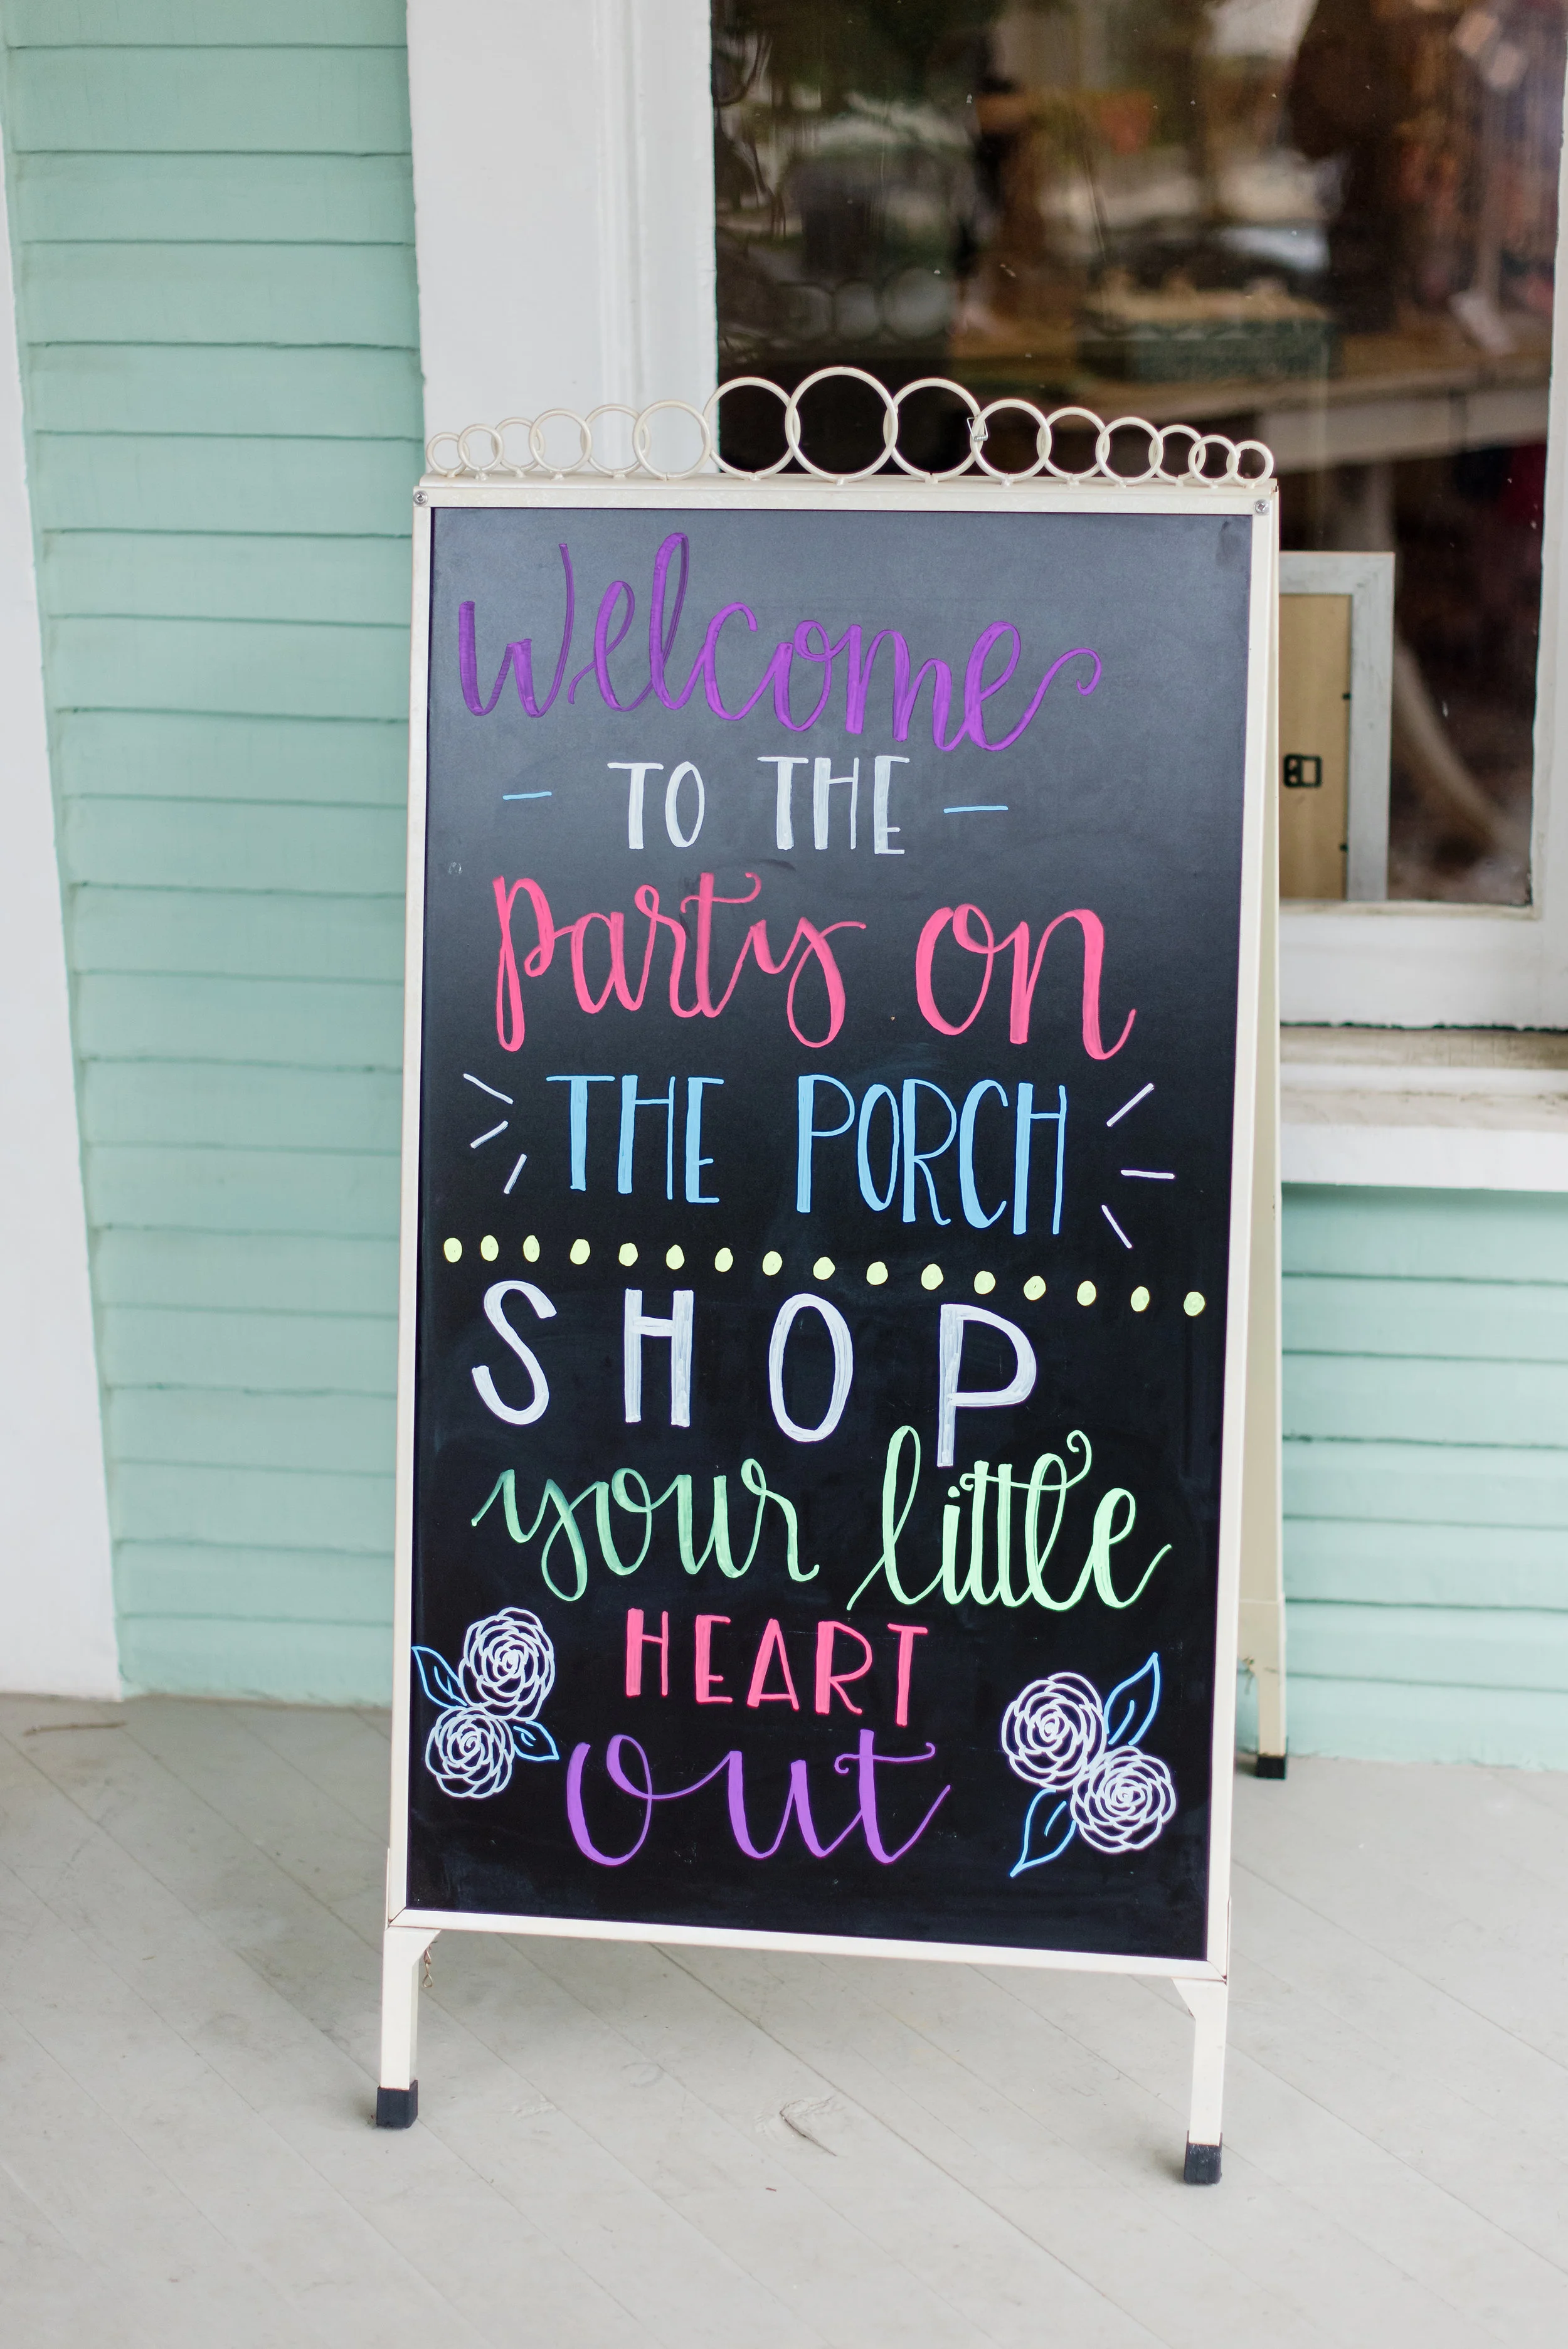 Welcome
TO THE
party on
THE PORCH
SHOP
your little
HEART
out